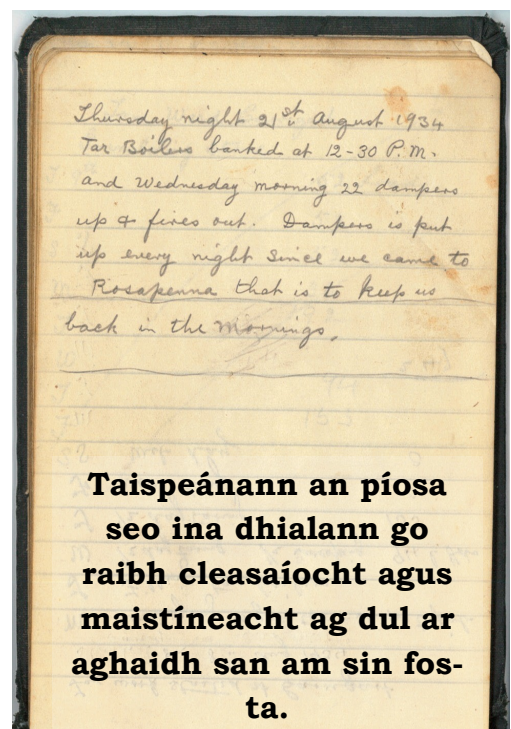 Thursday night 21st August 1934
Tar Boilers banked at 12-30 P.M.
and Wednesday morning 22 dampers
up & fires out. Dampers is put
up every night since we came to
Rosapenna that is to keep us
back in the mornings.
Taispeánann an píosa
seo ina dhialann go
raibh cleasaíocht agus
maistíneacht ag dul ar
aghaidh san am sin fos-
ta.